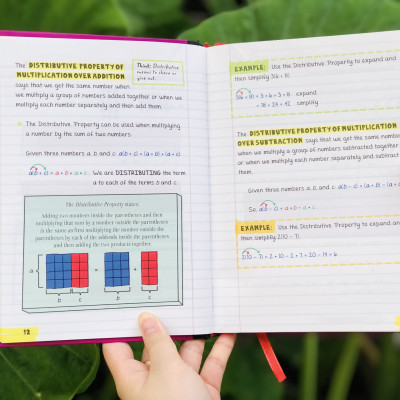 The DISTRIBUTIVE PROPERTY OF
MULTIPLICATION OVER ADDITION
says that we get the same number when
we multiply a group of numbers added together or when we
multiply each number separately and then add them.
Think: Distributive
means to share or
give out.
The Distributive Property can be used when multiplying
a number by the sum of two numbers.
Given three numbers a, b, and c: a(b + c) = (a • b) + (a • c).
a(b + c) = a • b + a • c. We are DISTRIBUTING the term
a to each of the terms b and c.
The Distributive Property states:
Adding two numbers inside the parentheses and then
multiplying that sum by a number outside the parentheses
is the same as first multiplying the number outside the
parentheses by each of the addends inside the parentheses
and then adding the two products together.
a = +
b c b c
12
EXAMPLE: Use the Distributive Property to expand and
then simplify 3(6 + 8).
3(6 + 8) = 3 • 6 + 3 • 8 expand
= 18 + 24 = 42 simplify
The DISTRIBUTIVE PROPERTY OF MULTIPLICATION
OVER SUBTRACTION says that we get the same number
when we multiply a group of numbers subtracted together
or when we multiply each number separately and subtract
them.
Given three numbers a, b, and c: a(b – c) = (a • b) – (a •
So, a(b – c) = a • b – a • c.
EXAMPLE: Use the Distributive Property to expand an
then simplify 2(10 – 7).
2(10 – 7) = 2 • 10 – 2 • 7 = 20 – 14 = 6